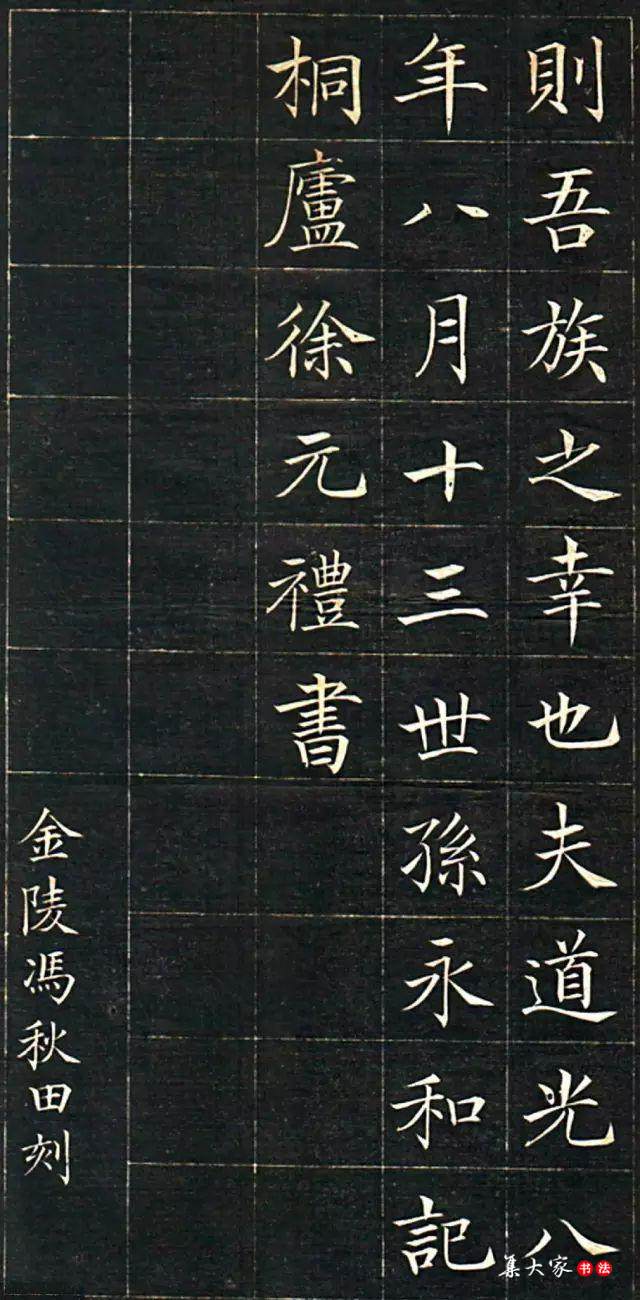 則吾族之幸也夫道光八
年八月十三世孫永和記
桐廬徐元禮書
金陵馮秋田刻
集大家书法